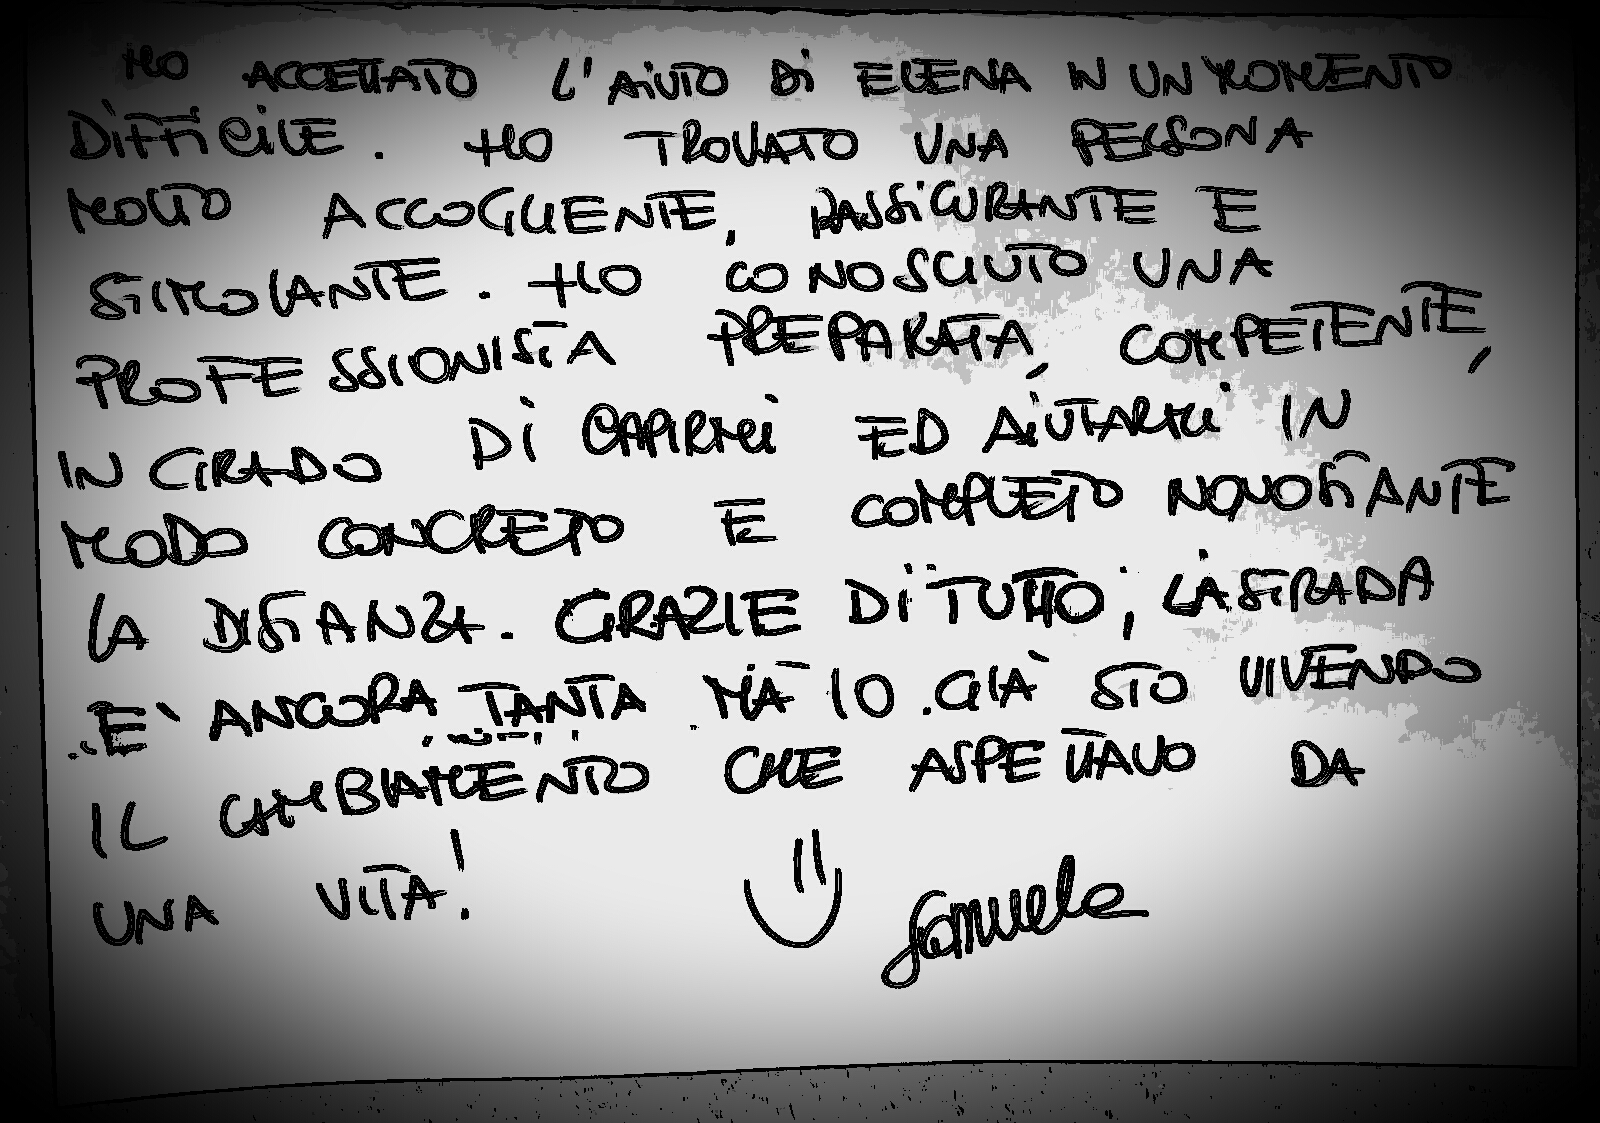 HO ACCETTATO L'AIUTO DI ELENA IN UN MOMENTO
DIFFICILE. HO TROVATO UNA PERSONA
MOLTO ACCOGLIENTE, RASSICURANTE E
STIMOLANTE. HO CONOSCIUTO UNA
PROFESSIONISTA PREPARATA, COMPETENTE,
IN GRADO DI CAPIRMI ED AIUTARMI IN
MODO CONCRETO E COMPLETO NONOSTANTE
LA DISTANZA. GRAZIE DI TUTTO, LA STRADA
E' ANCORA TANTA MA IO GIÀ STO VIVENDO
IL CAMBIAMENTO CHE ASPETTAVO DA
UNA VITA!
Samuela